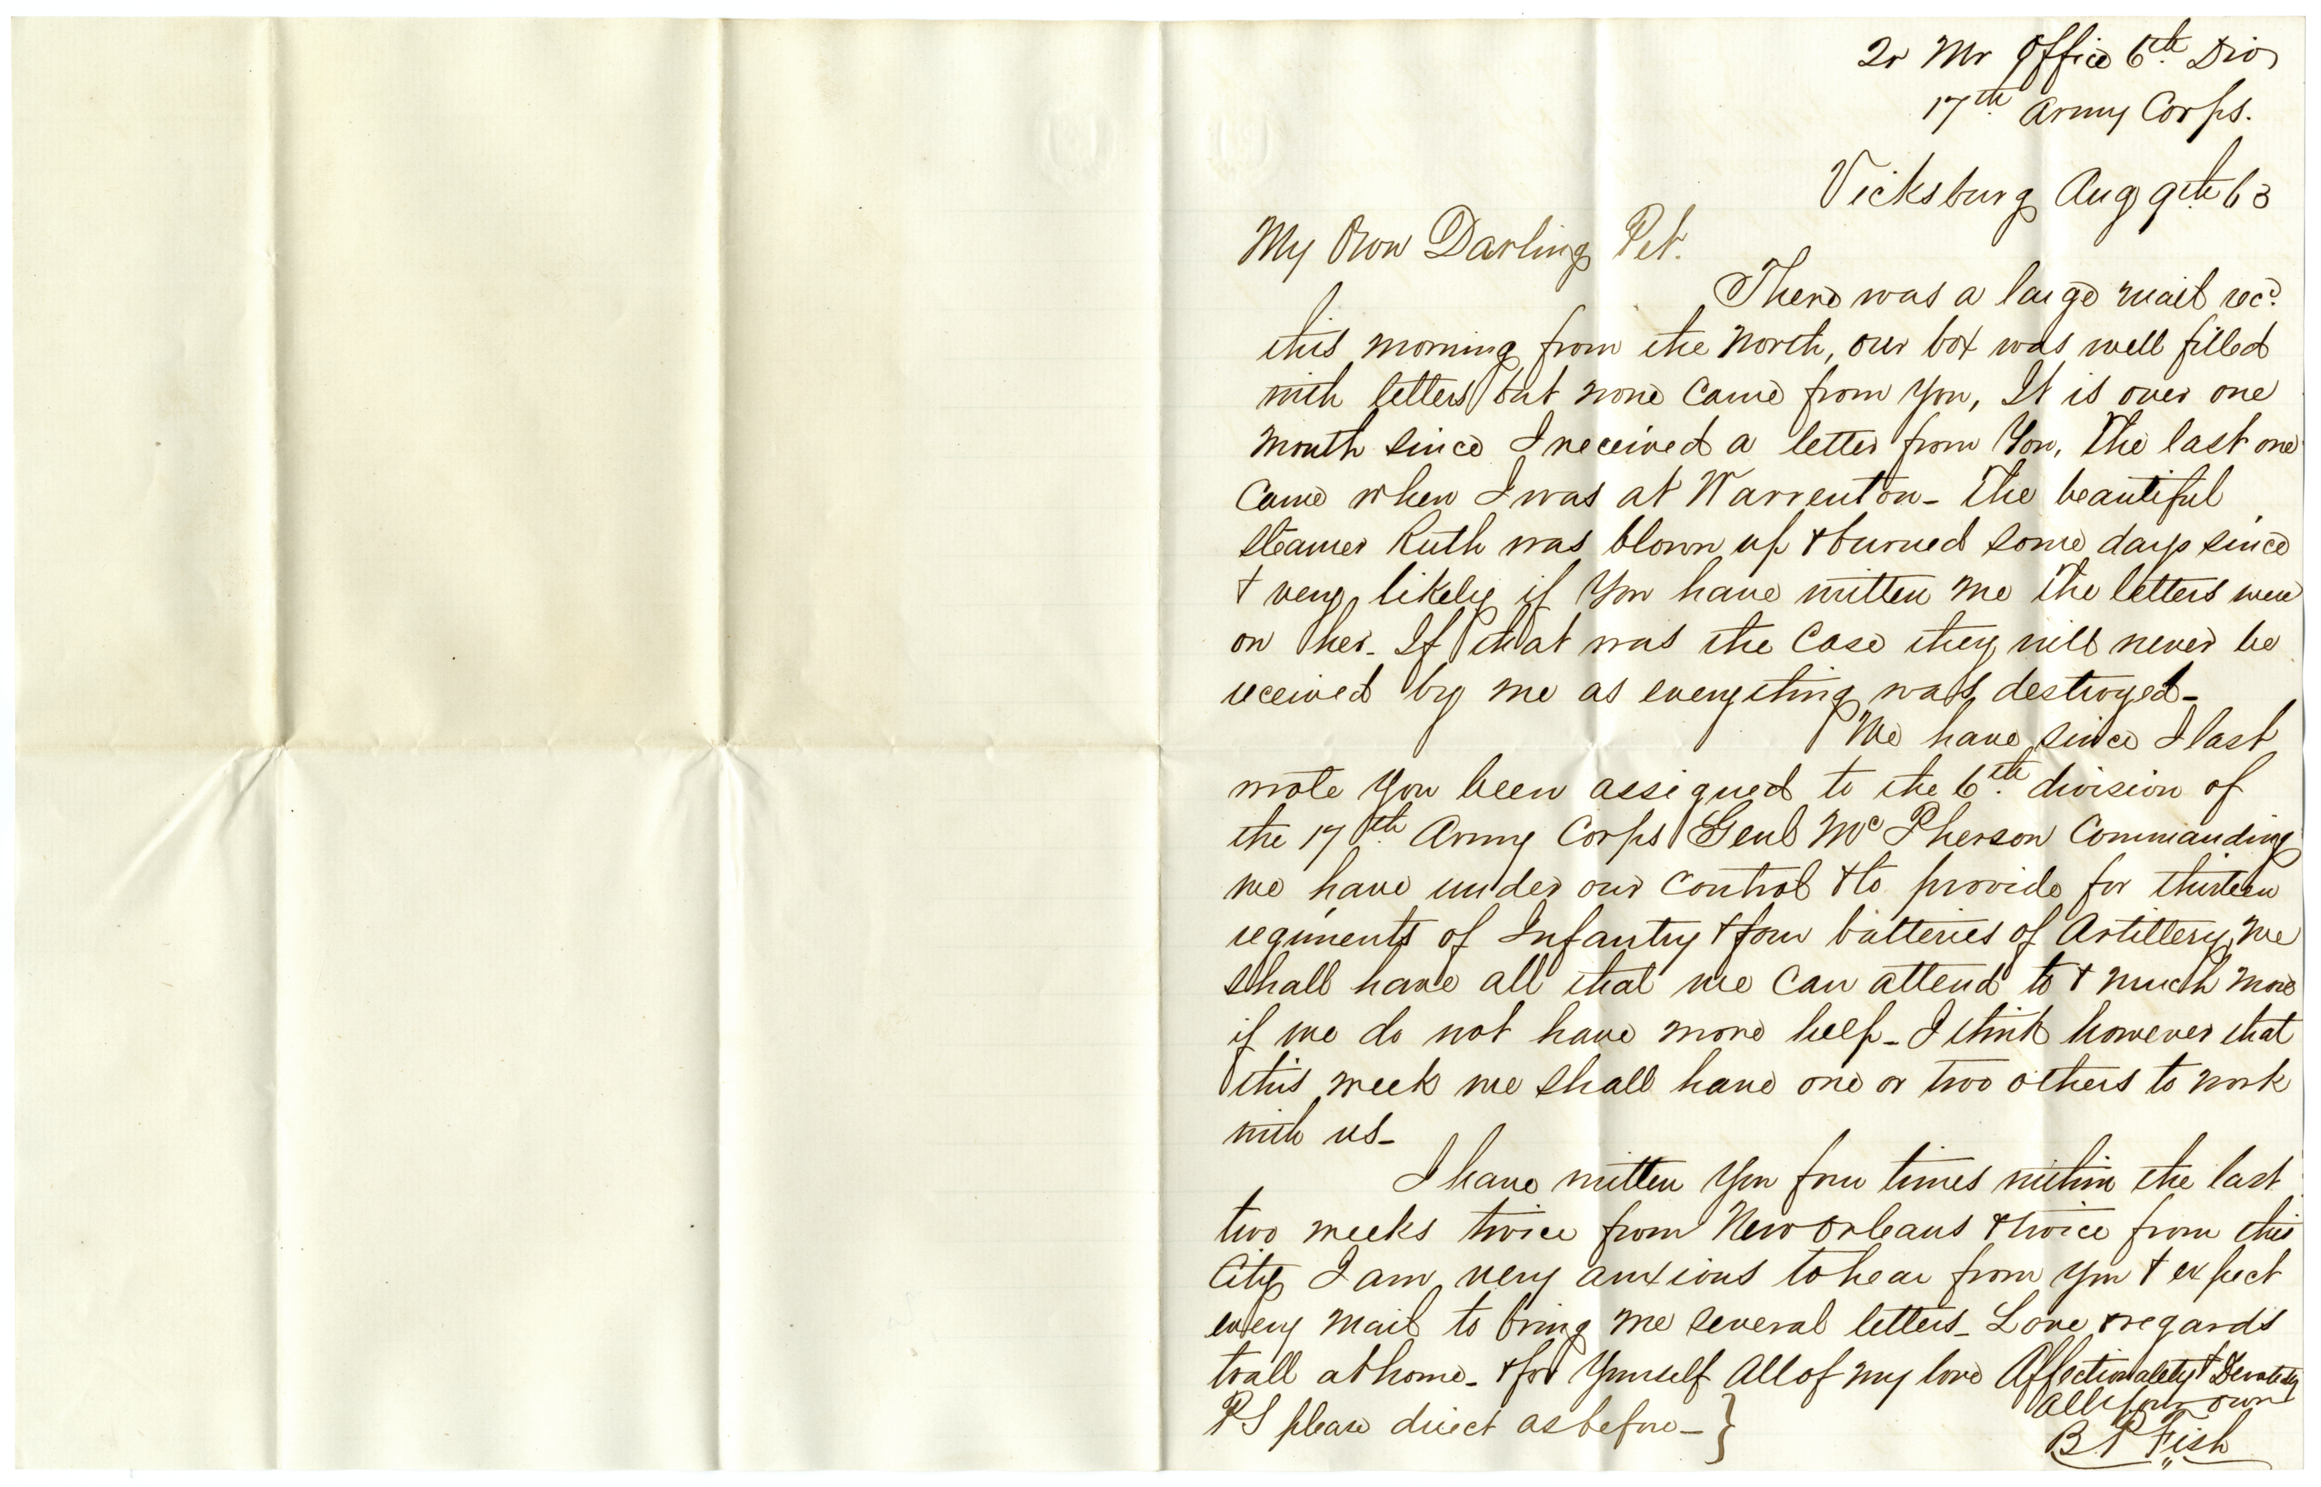 Qr Mr Office 6th Div
17th Army Corps.
Vicksburg Aug 9th 63
My Own Darling Pet.
There was a large mail recd.
this morning from the North, our box was well filled
with letters but none came from you, It is over one
month since I received a letter from You, The last one
came when I was at Warrenton - The beautiful
steamer Ruth was blown up & burned some days since
& very likely if You have written me the letters were
on her - If that was the case they will never be
received by me as everything was destroyed -
We have since I last
wrote you been assigned to the 6th division of
the 17th Army Corps Genl McPherson Commanding
we have under our control & to provide for thirteen
regiments of Infantry & four batteries of Artillery, we
shall have all that we can attend to & much more
if we do not have more help - I think however that
this week we shall have one or two others to work
with us -
I have written You four times within the last
two weeks twice from New Orleans & twice from this
City I am very anxious to hear from you & expect
every mail to bring me several letters - Love & regards
to all at home - & for Yourself All of my love Affectionately & Devotedly
All Your own
PS please direct as before - }
B P Fish